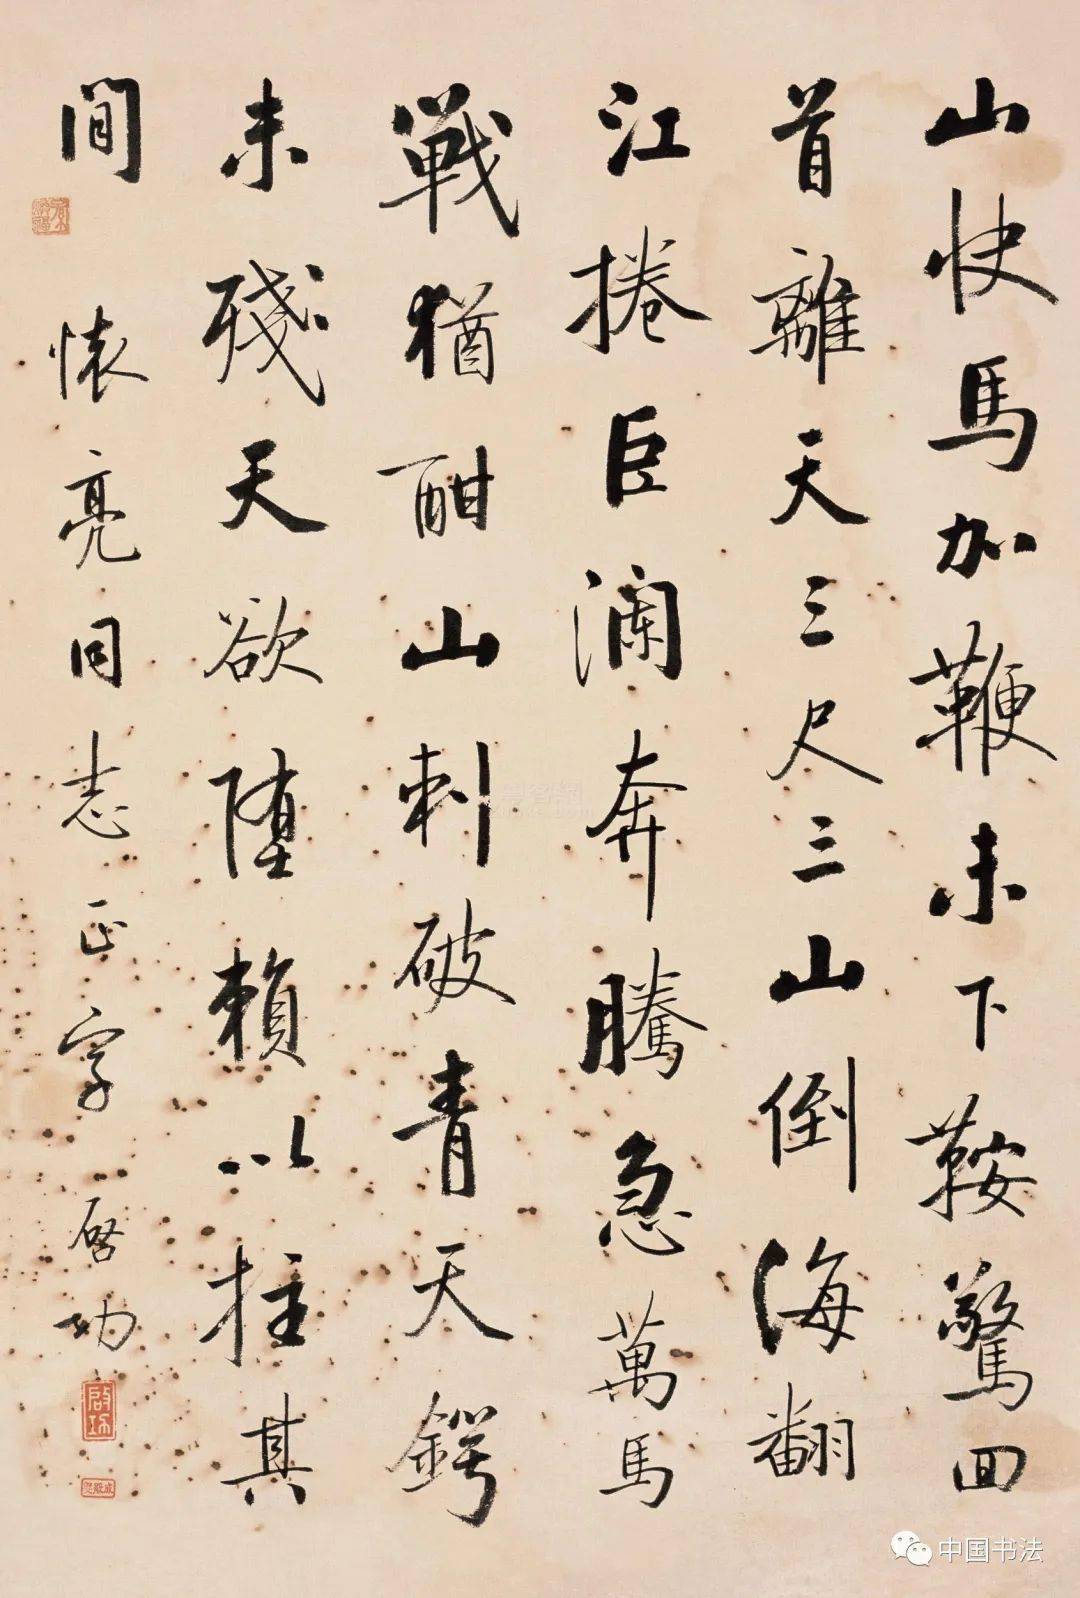 山快馬加鞭未下鞍驚回
首離天三尺三山倒海翻
江捲臣瀾奔騰急萬馬
戰猶酣山刺破青天鍔
未殘天欲墮賴以拄其
間
懷亮同志正字 啓功
啟功
中国书法